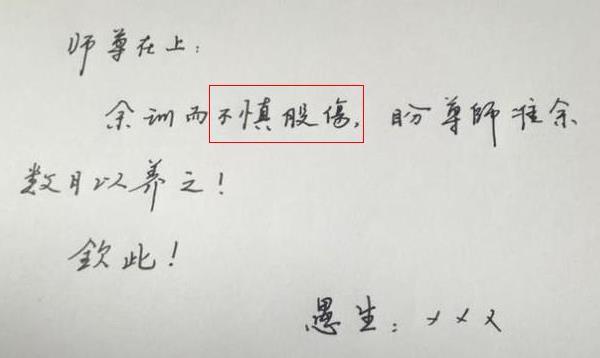 师尊在上：
余训而不慎股傷，盼尊師准余
数月以养之！
欽此！
愚生：xxx